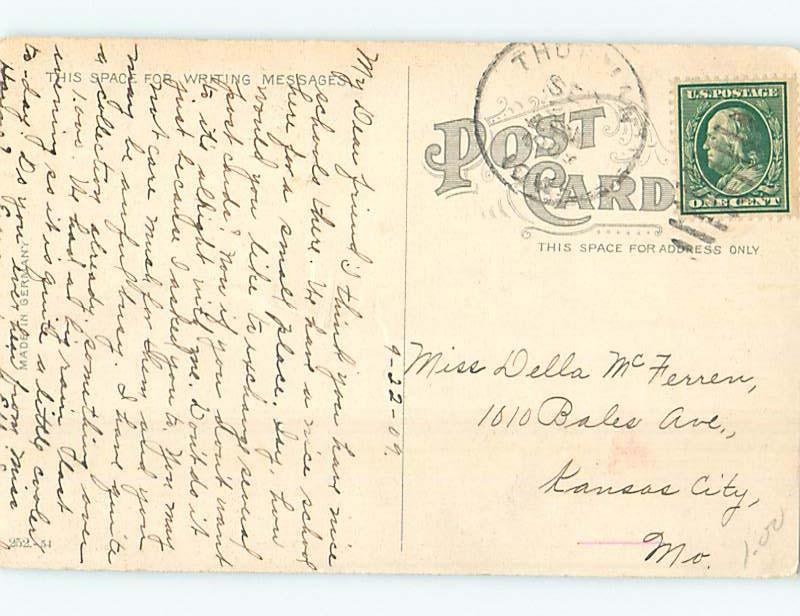 THIS SPACE FOR WRITING MESSAGES
My Dear friend I think you have nice
schools there. We have a nice school
here for a small place. Say, how
would you like to exchange several
post cards? Now if you don't want
to it's allright with me. Don't do it
just because I asked you to. You may
not care much for them and you
may be awful busy. I have quite
a collection already, something over
1.000. We had a big rain last
evening as it is quite a little cooler
to-day. Do you ever hear from Miss
9-22-09.
MADE IN GERMANY
252.-51
POST CARD
THIS SPACE FOR ADDRESS ONLY
U.S. POSTAGE
ONE CENT
Miss Della McFerren,
1010 Bales Ave.,
Kansas City,
Mo.
1.00